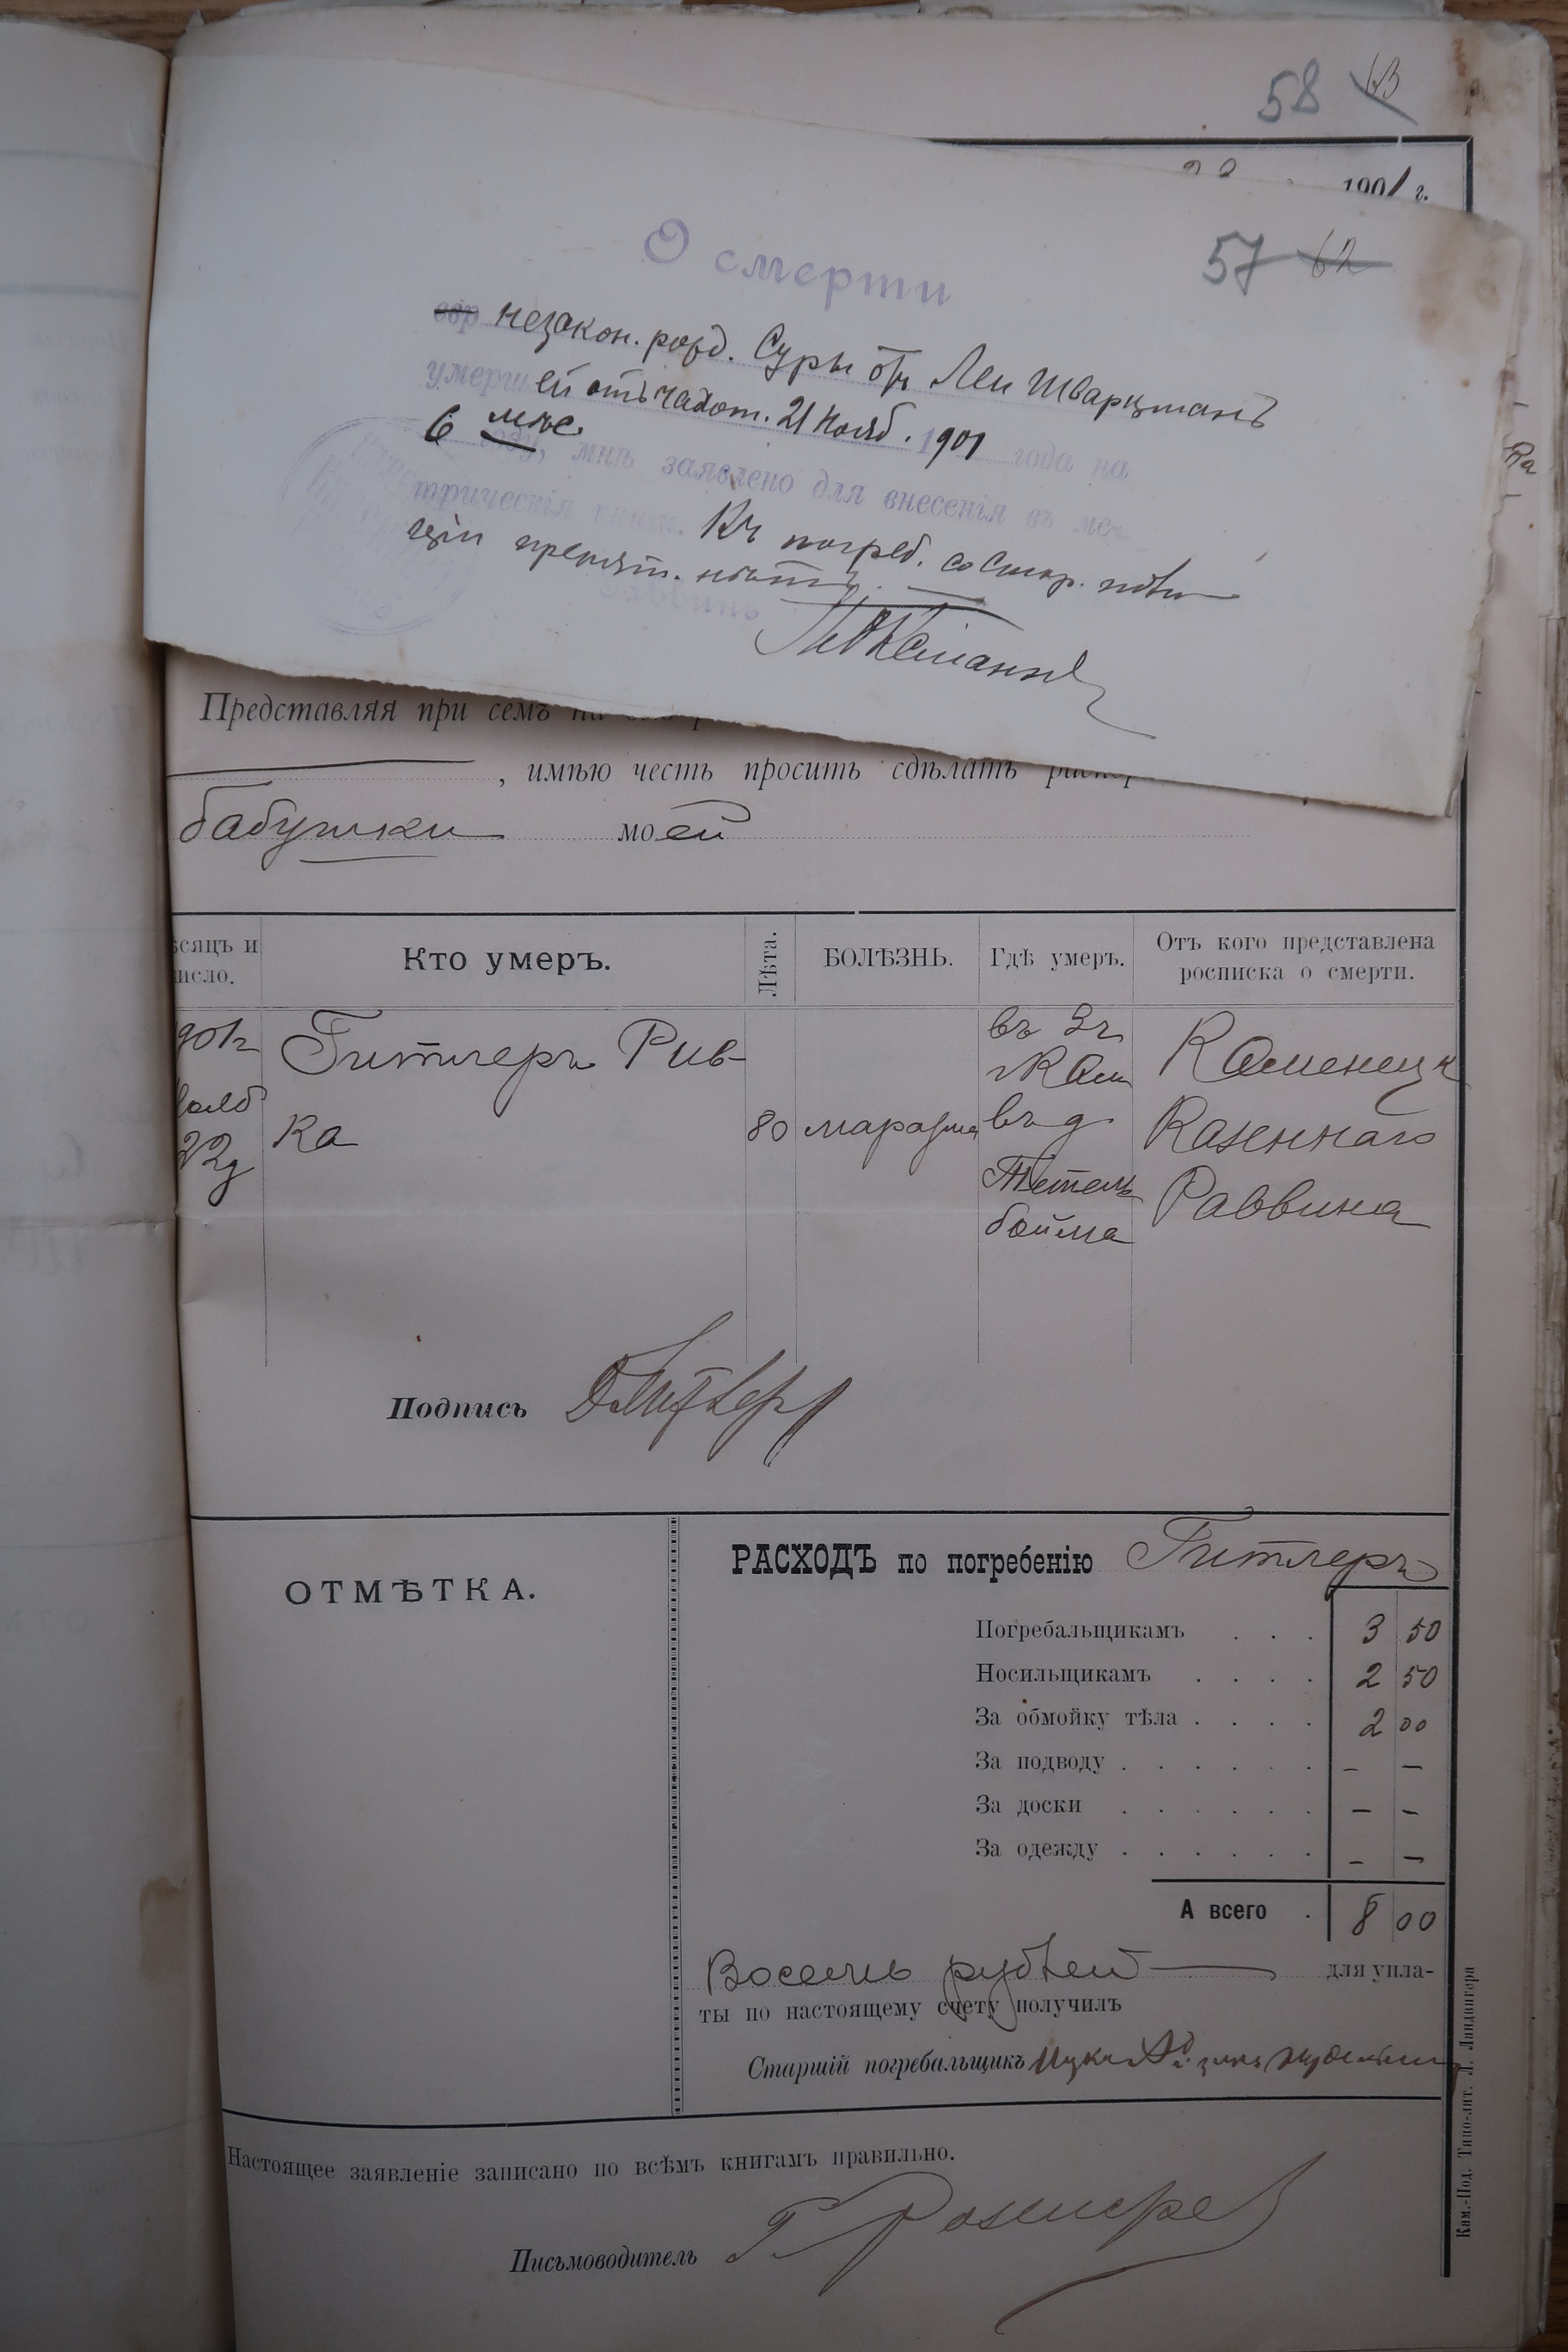 58 63
1901 г.
57 62
О смерти
евр незакон. рожд. Суры отъ Леи Шварцманъ
умерш ей отъ чахот. 21 Нояб. 1901 года на
6 мѣс.
году, мнѣ заявлено для внесенія въ ме-
трическія книги. Къ погреб. со стор.
препят. нѣтъ.
Раввинъ
Представляя при семъ на
, имѣю честь просить сдѣлать
бабушки моей
ѣсяцъ и число.
Кто умеръ.
Лѣта.
БОЛѢЗНЬ.
Гдѣ умеръ.
Отъ кого представлена
росписка о смерти.
901г
22д
Гитлеръ Рив-
ка
80
маразма
въ
въ д
Тетель
бойма
Каменецк
Казеннаго
Раввина
Подпись
ОТМѢТКА.
РАСХОДЪ по погребенію Гитлеръ
Погребальщикамъ . . . 3 50
Носильщикамъ . . . . 2 50
За обмойку тѣла . . . . 2 00
За подводу . . . . . . – –
За доски . . . . . . – –
За одежду . . . . . . – –
А всего . 8 00
Восемь рублей для упла-
ты по настоящему счету получилъ
Старшій погребальщикъ
Настоящее заявленіе записано по всѣмъ книгамъ правильно.
Письмоводитель
Кам.-Под. Типо-лит. Л. Ландвигера